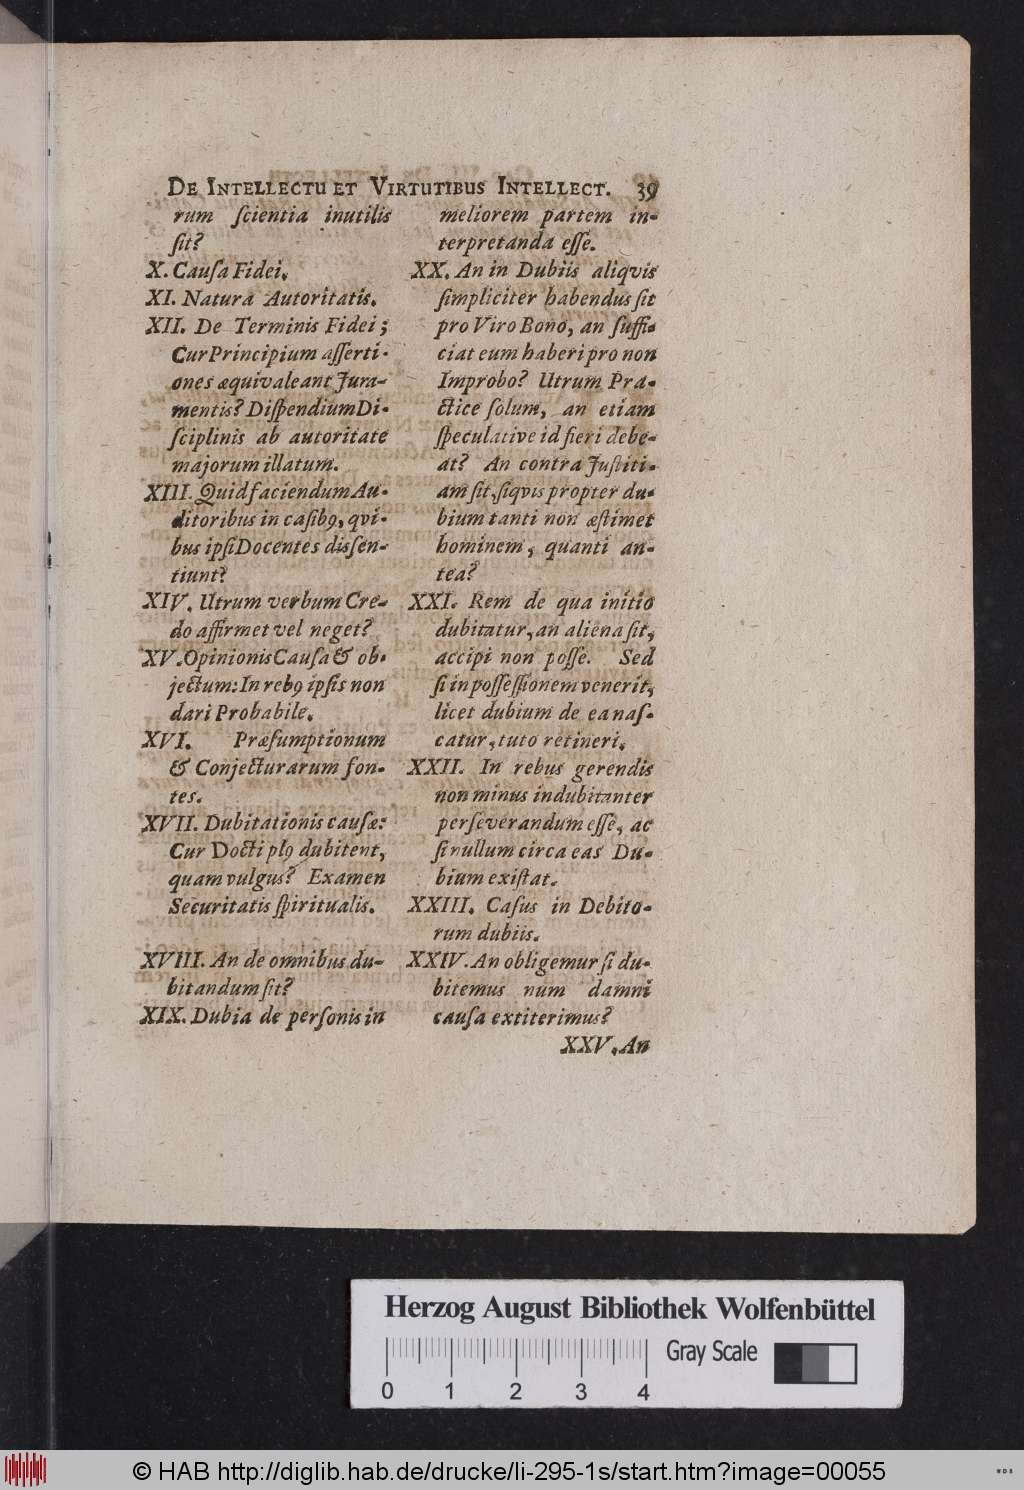 De Intellectu et Virtutibus Intellect. 39
rum ſcientia inutilis
ſit?
X. Cauſa Fidei.
XI. Natura Autoritatis.
XII. De Terminis Fidei;
Cur Principium aſſerti-
ones æquivaleant Jura-
mentis? Diſpendium Di-
ſciplinis ab autoritate
majorum illatum.
XIII. Quid faciendum Au-
ditoribus in caſibꝯ, qvi-
bus ipſi Docentes disſen-
tiunt?
XIV. Utrum verbum Cre-
do affirmet vel neget?
XV. Opinionis Cauſa & ob-
jectum: In rebꝯ ipſis non
dari Probabile.
XVI. Præſumptionum
& Conjecturarum fon-
tes.
XVII. Dubitationis cauſæ:
Cur Docti plꝯ dubitent,
quam vulgus? Examen
Securitatis ſpiritualis.
XVIII. An de omnibus du-
bitandum ſit?
XIX. Dubia de perſonis in
meliorem partem in-
terpretanda eſſe.
XX. An in Dubiis aliqvis
ſimpliciter habendus ſit
pro Viro Bono, an ſuffi-
ciat eum haberi pro non
Improbo? Utrum Pra-
ctice ſolum, an etiam
ſpeculative id fieri debe-
at? An contra Juſtiti-
am ſit, ſiqvis propter du-
bium tanti non æſtimet
hominem, quanti an-
tea?
XXI. Rem de qua initio
dubitatur, an aliena ſit,
accipi non poſſe. Sed
ſi in poſſeſſionem venerit,
licet dubium de ea naſ-
catur, tuto retineri.
XXII. In rebus gerendis
non minus indubitanter
perſeverandum eſſe, ac
ſi nullum circa eas Du-
bium exiſtat.
XXIII. Caſus in Debito-
rum dubiis.
XXIV. An obligemur ſi du-
bitemus num damni
cauſa extiterimus?
XXV. An
Herzog August Bibliothek Wolfenbüttel
0 1 2 3 4 Gray Scale
© HAB http://diglib.hab.de/drucke/li-295-1s/start.htm?image=00055